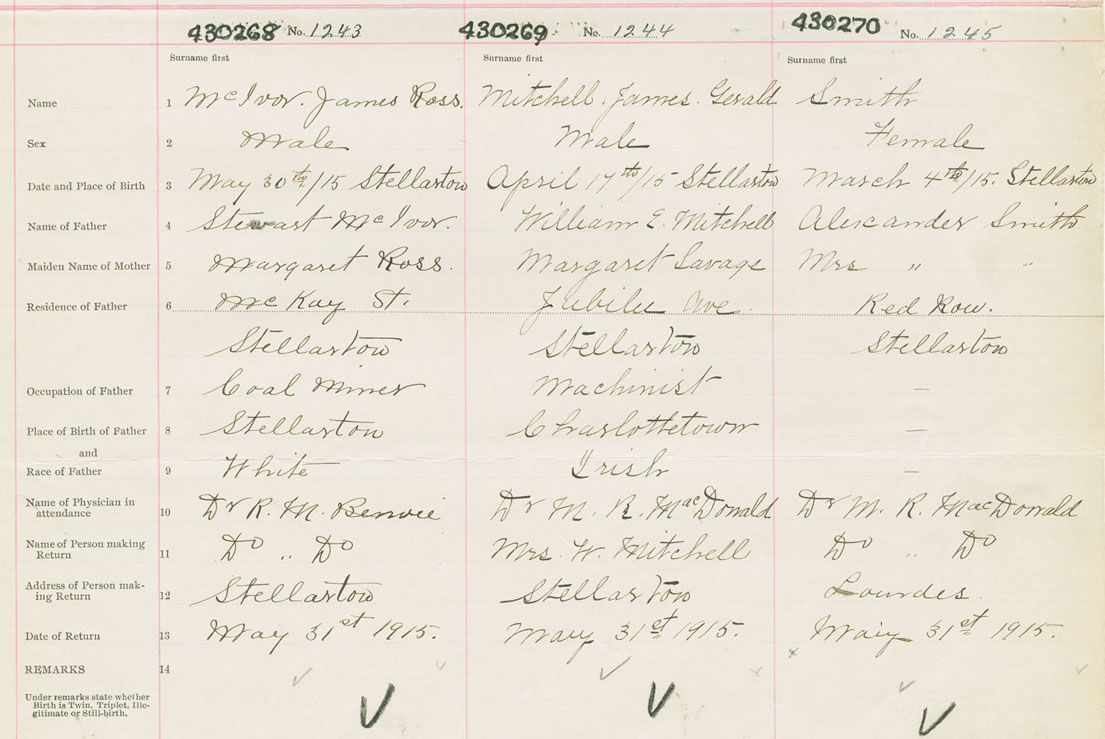 430268 No. 1243 430269 No. 1244 430270 No. 1245
Surname first Surname first Surname first
Name 1 McIvor. James Ross. Mitchell. James. Gerald Smith
Sex 2 Male Male Female
Date and Place of Birth 3 May 30th/15 Stellarton April 17th/15 Stellarton March 4th/15. Stellarton
Name of Father 4 Stewart McIvor. William E. Mitchell Alexander Smith
Maiden Name of Mother 5 Margaret Ross. Margaret Savage Mrs " "
Residence of Father 6 McKay St. Jubilee Ave Red Row.
Stellarton Stellarton Stellarton
Occupation of Father 7 Coal Miner Machinist —
Place of Birth of Father 8 Stellarton Charlottetown —
and
Race of Father 9 White Irish —
Name of Physician in
attendance 10 Dr R. M. Benvie Dr M. R. MacDonald Dr M. R. MacDonald
Name of Person making
Return 11 Do " Do Mrs. W. Mitchell Do " Do
Address of Person mak-
ing Return 12 Stellarton Stellarton Lourdes.
Date of Return 13 May 31st 1915. May 31st 1915. May 31st 1915.
REMARKS 14
Under remarks state whether
Birth is Twin, Triplet, Ille-
gitimate or Still-birth.